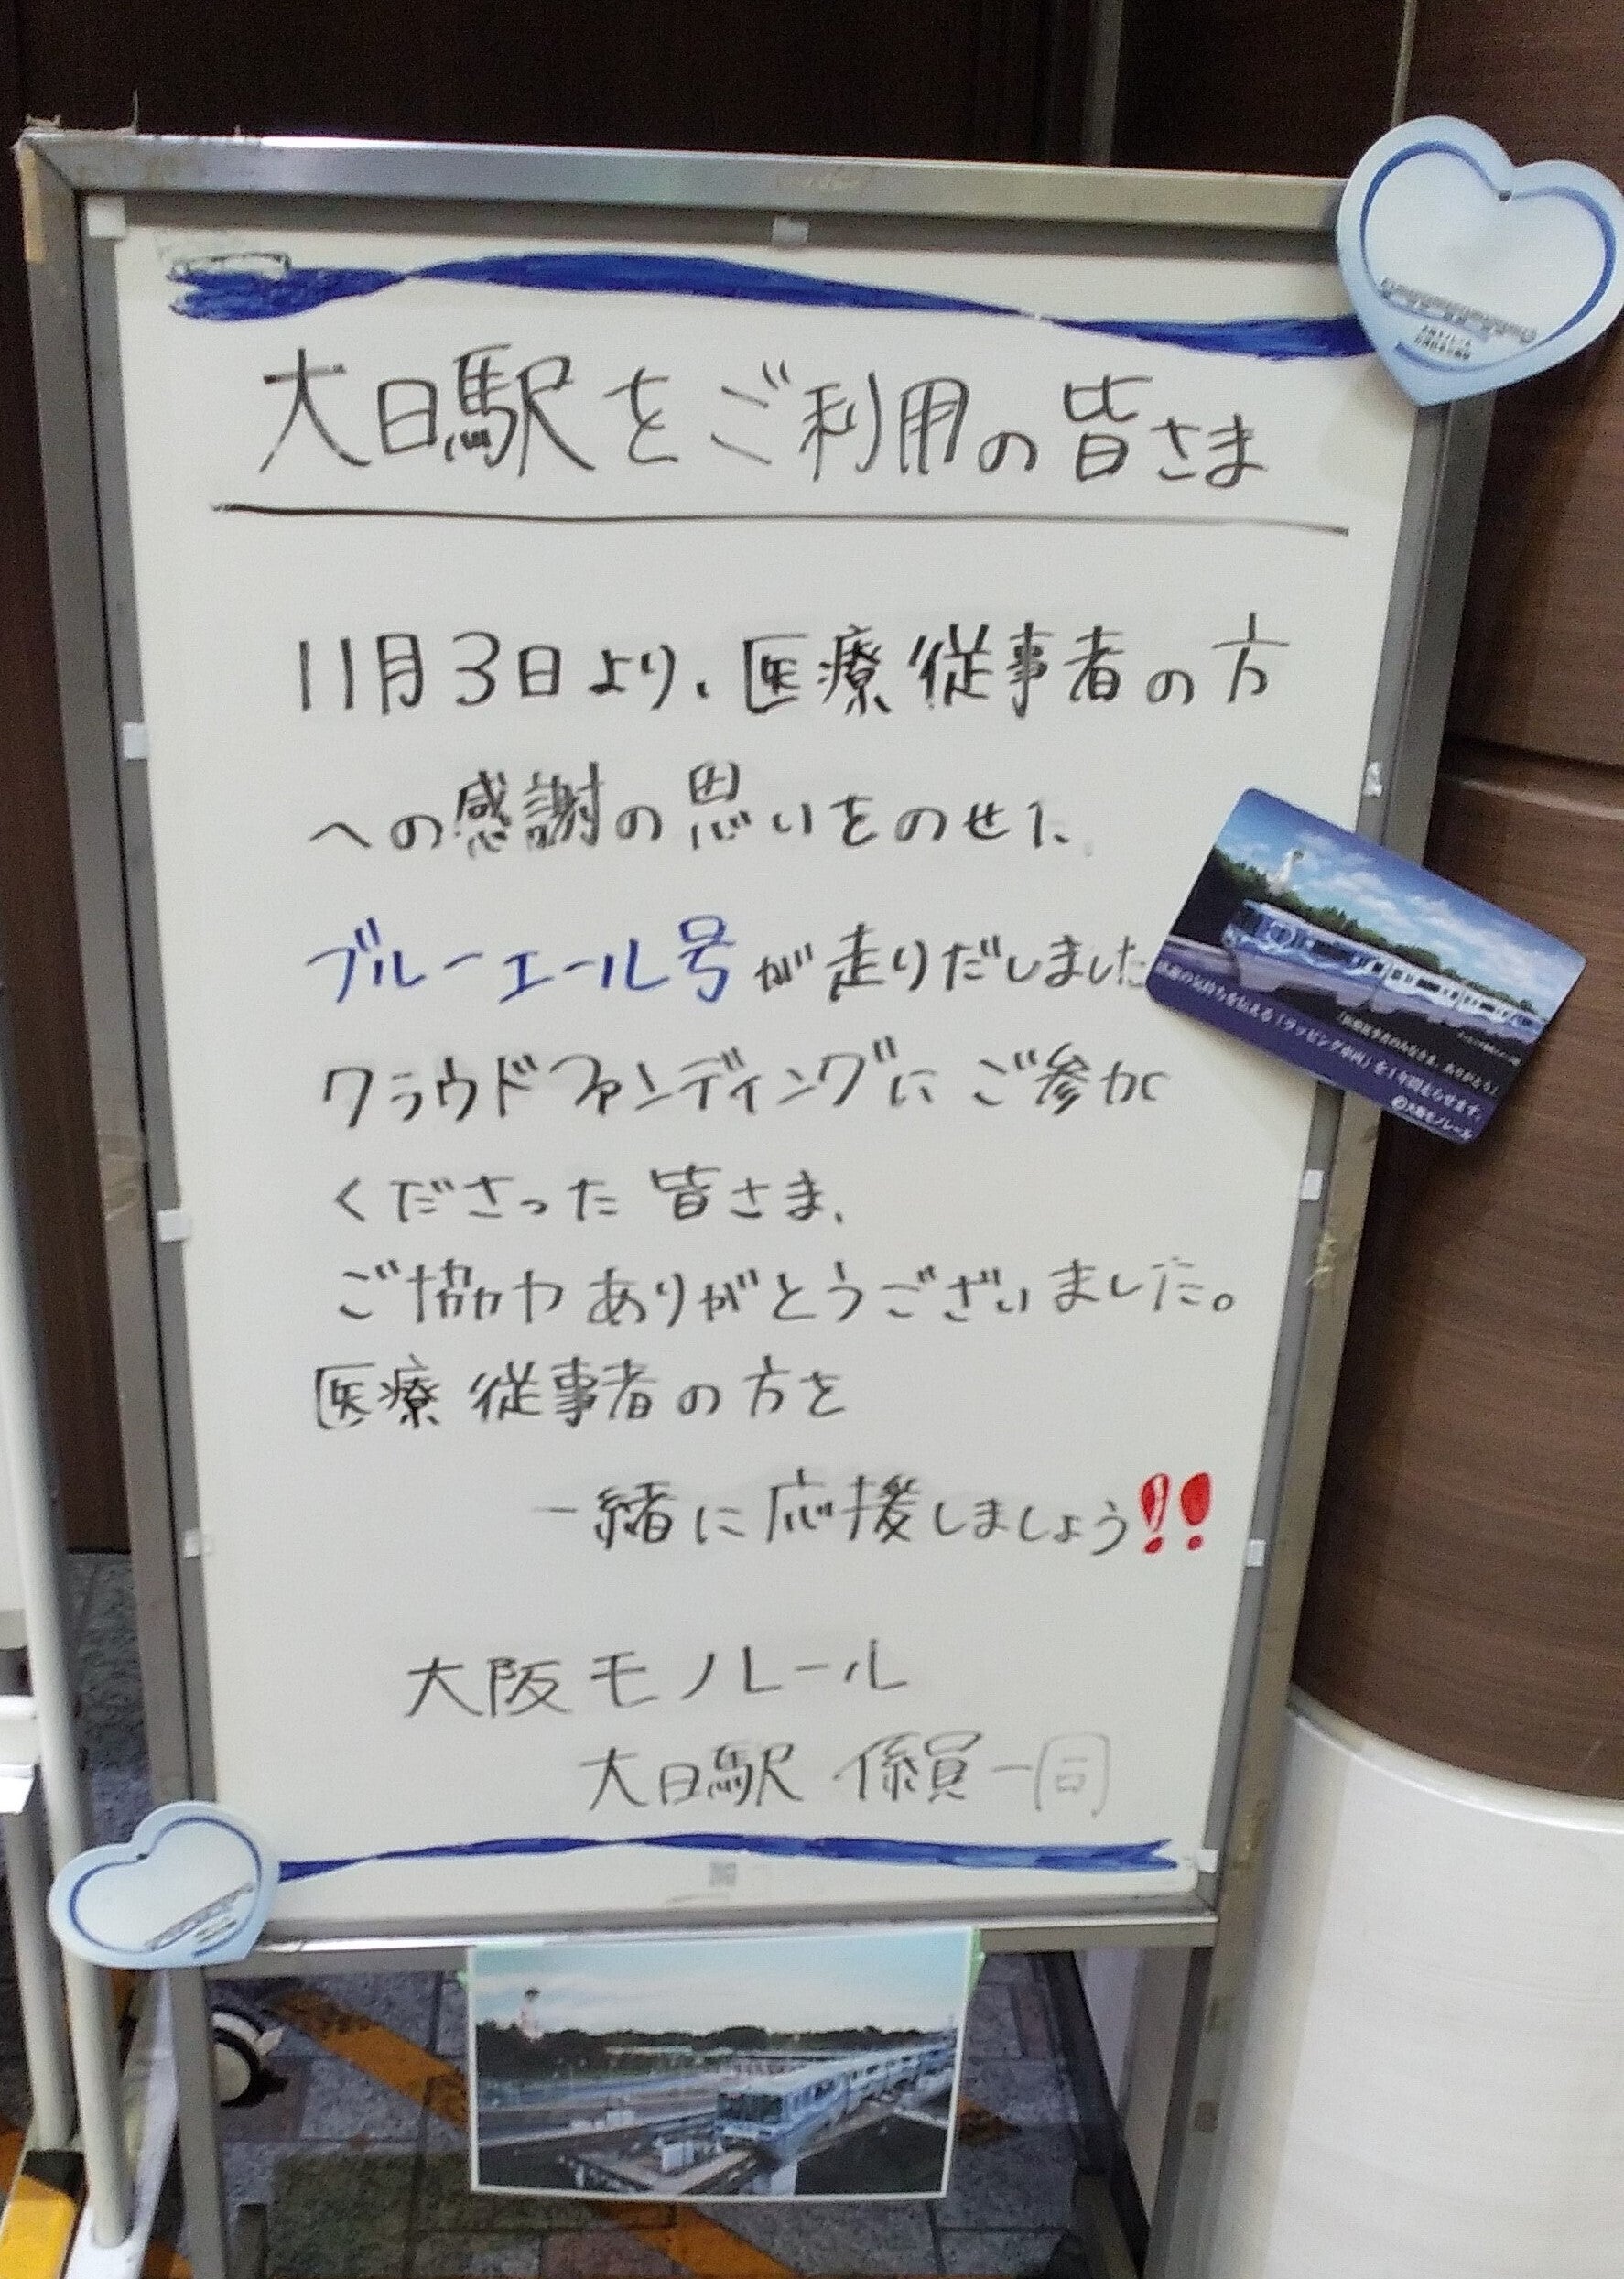 大日駅をご利用の皆さま
11月3日より、医療従事者の方
への感謝の思いをのせた
ブルーエール号が走りだしました
クラウドファンディングにご参加
くださった皆さま、
ご協力ありがとうございました。
医療従事者の方を
一緒に応援しましょう!!
大阪モノレール
大日駅 係員一同
「医療従事者のみなさま、ありがとう」
の気持ちを伝える「ラッピング車両」を1年間走らせます。
大阪モノレール